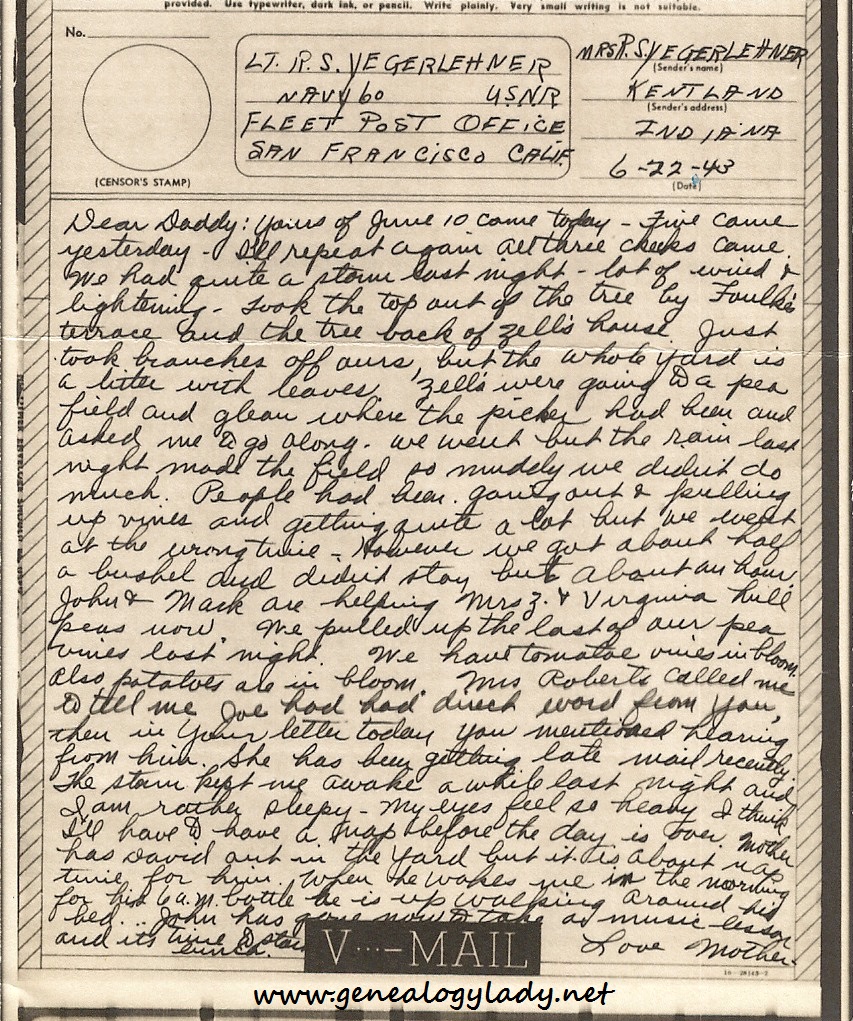 provided. Use typewriter, dark ink, or pencil. Write plainly. Very small writing is not suitable.
No.
(CENSOR'S STAMP)
LT. R. S. YEGERLEHNER
NAVY 60 USNR
FLEET POST OFFICE
SAN FRANCISCO CALIF.
MRS R. S. YEGERLEHNER
(Sender's name)
KENTLAND
(Sender's address)
INDIANA
6-22-43
(Date)
Dear Daddy: Yours of June 10 came today - Five came
yesterday - I'll repeat again all three checks came.
We had quite a storm last night - lot of wind &
lightening - Took the top out of the tree by Foulks
terrace and the tree back of Zell's house. Just
took branches off ours, but the whole yard is
a litter with leaves. Zell's were going to a pea
field and glean where the picker had been and
asked me to go along. We went but the rain last
night made the field so muddy we didn't do
much. People had been going out & pulling
up vines and getting quite a lot but we went
at the wrong time - However we got about half
a bushel and didn't stay but about an hour.
John & Mark are helping Mrs Z. & Virginia hull
peas now. We pulled up the last of our pea
vines last night. We have tomatoe vines in bloom.
Also potatoes are in bloom. Mrs Roberts called me
to tell me Joe had had direct word from you,
then in your letter today you mentioned hearing
from him. She has been getting late mail recently.
The storm kept me awake awhile last night and
I am rather sleepy - My eyes feel so heavy I think
I'll have to have a nap before the day is over. Mother
has David out in the yard but it is about nap
time for him. When he wakes me in the morning
for his 6 a.m. bottle he is up walking around his
bed... John has gone now to take a music lesson
and its time to start
lunch. Love Mother.
V···-MAIL
16-28143-2
www.genealogylady.net